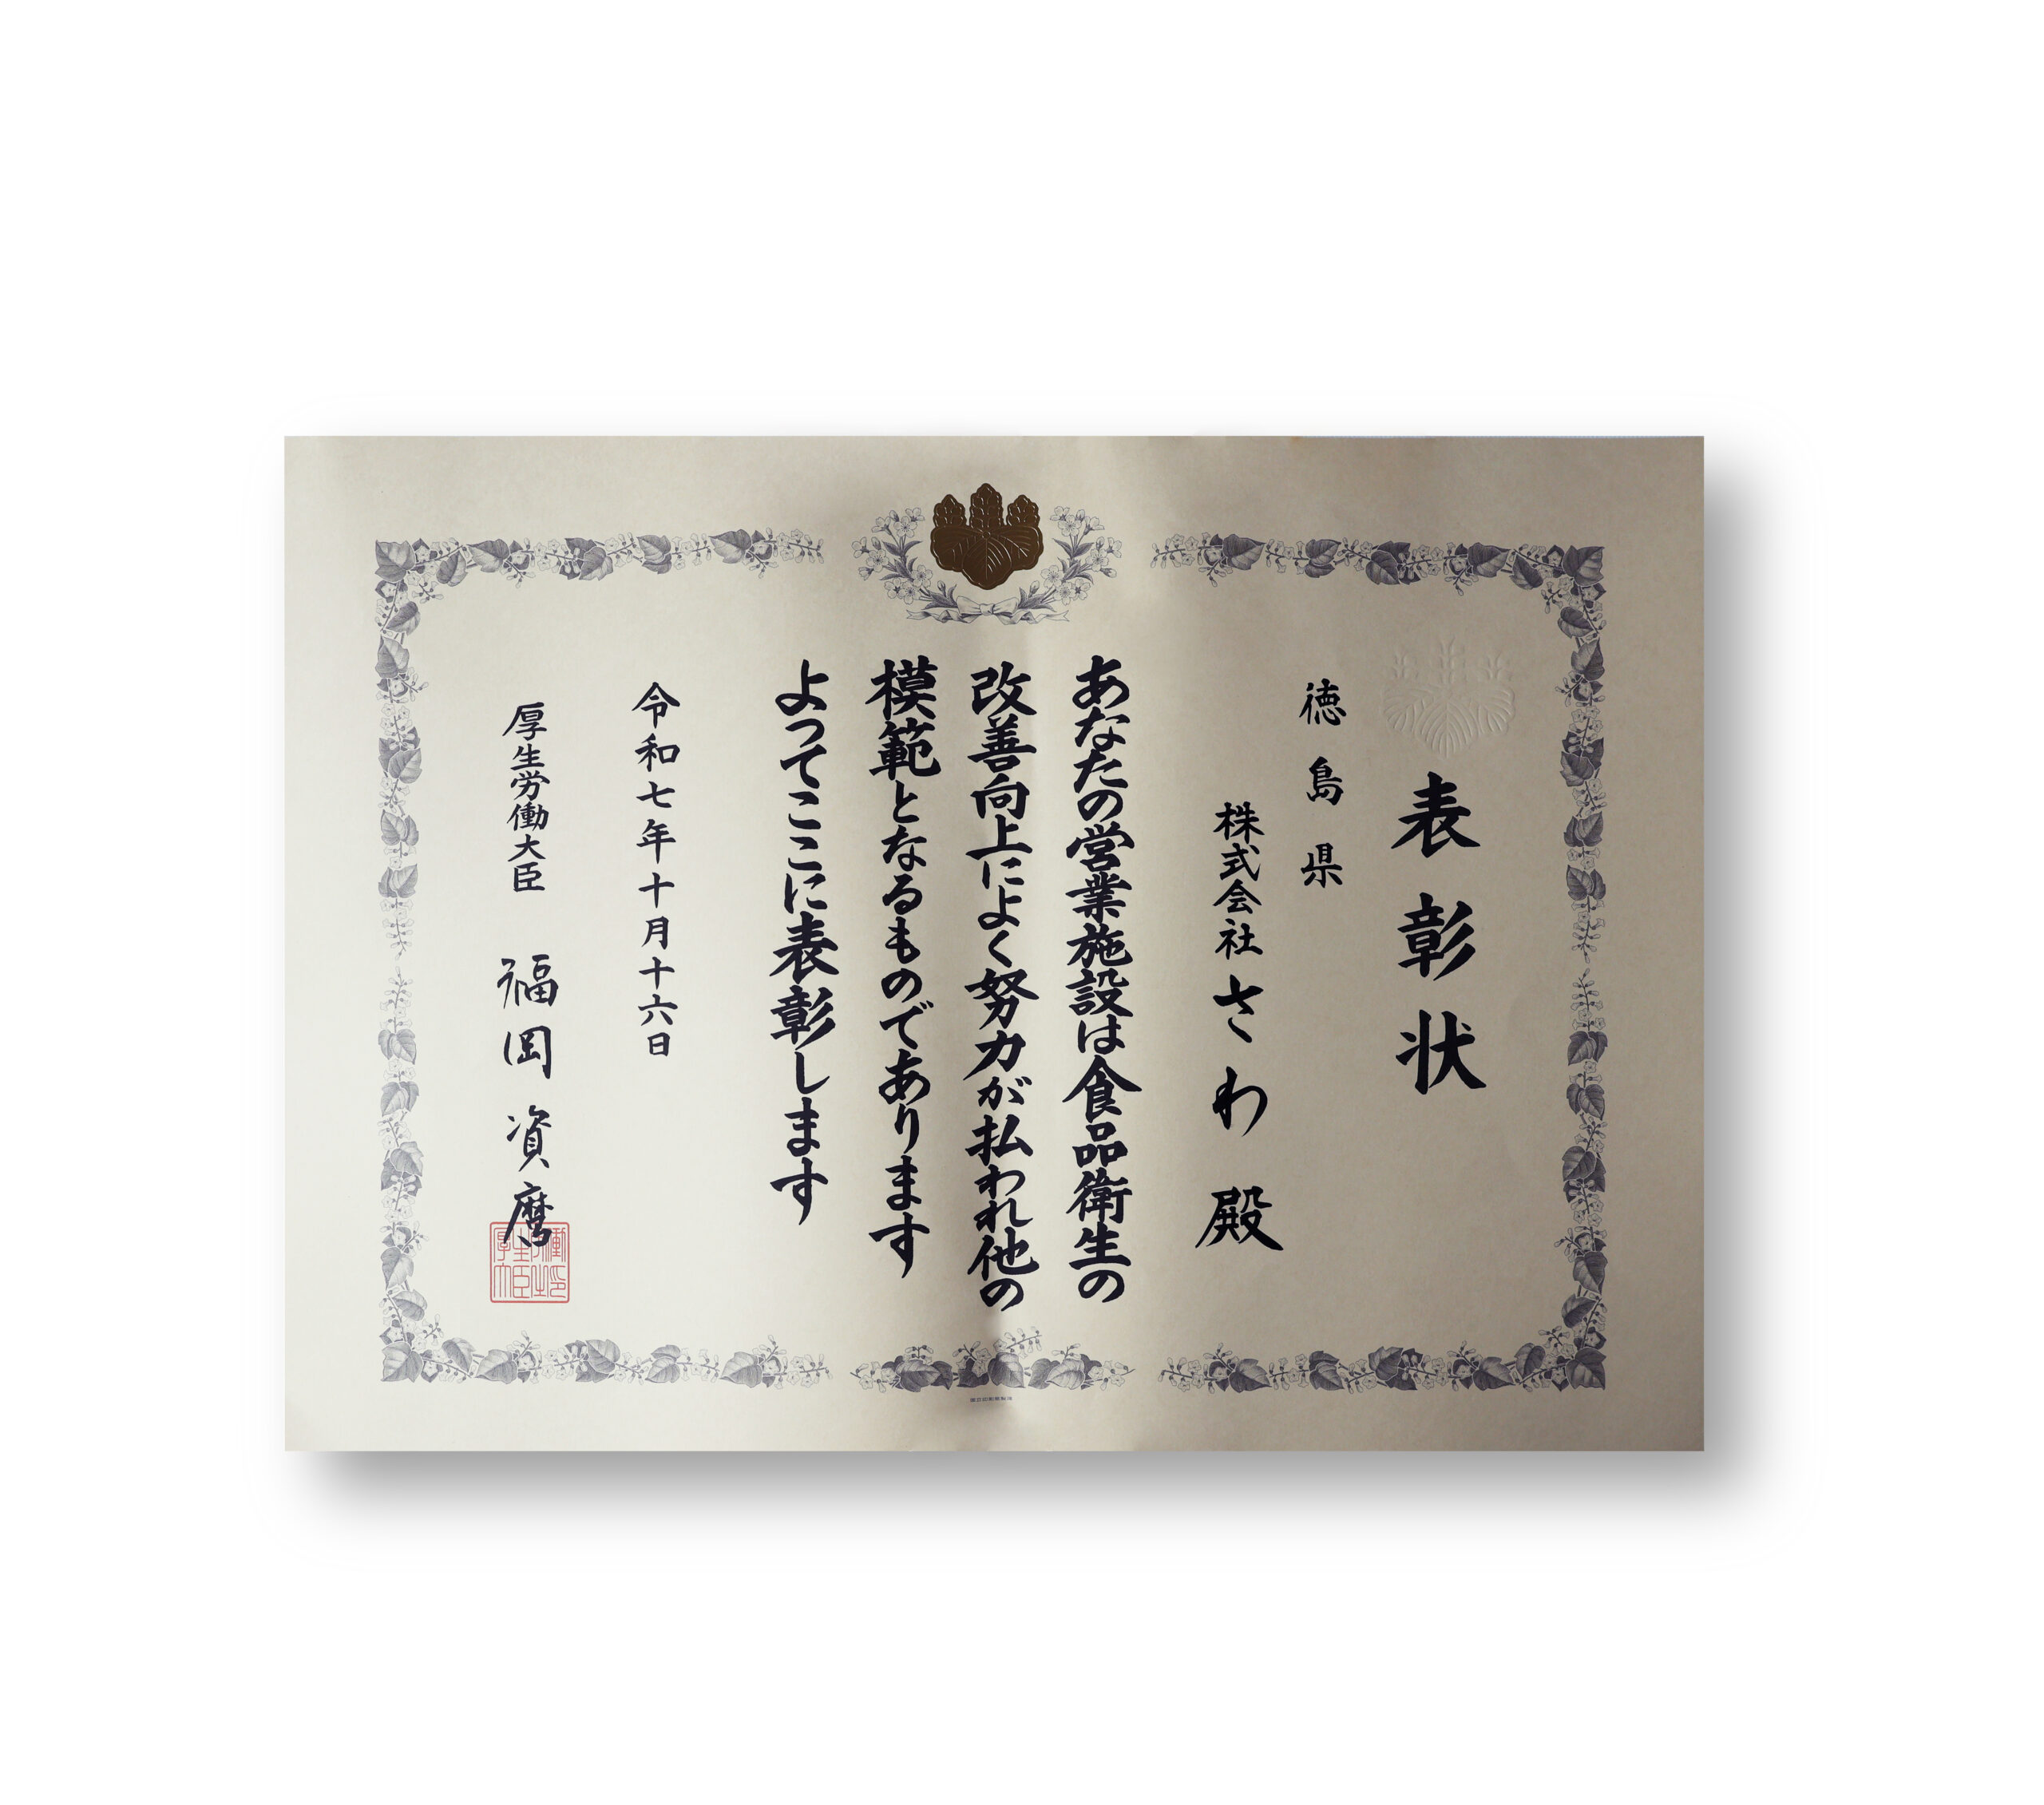 表彰状
徳島県
株式会社さわ 殿
あなたの営業施設は食品衛生の
改善向上によく努力が払われ他の
模範となるものであります
よってここに表彰します
令和七年十月十六日
厚生労働大臣 福岡資麿